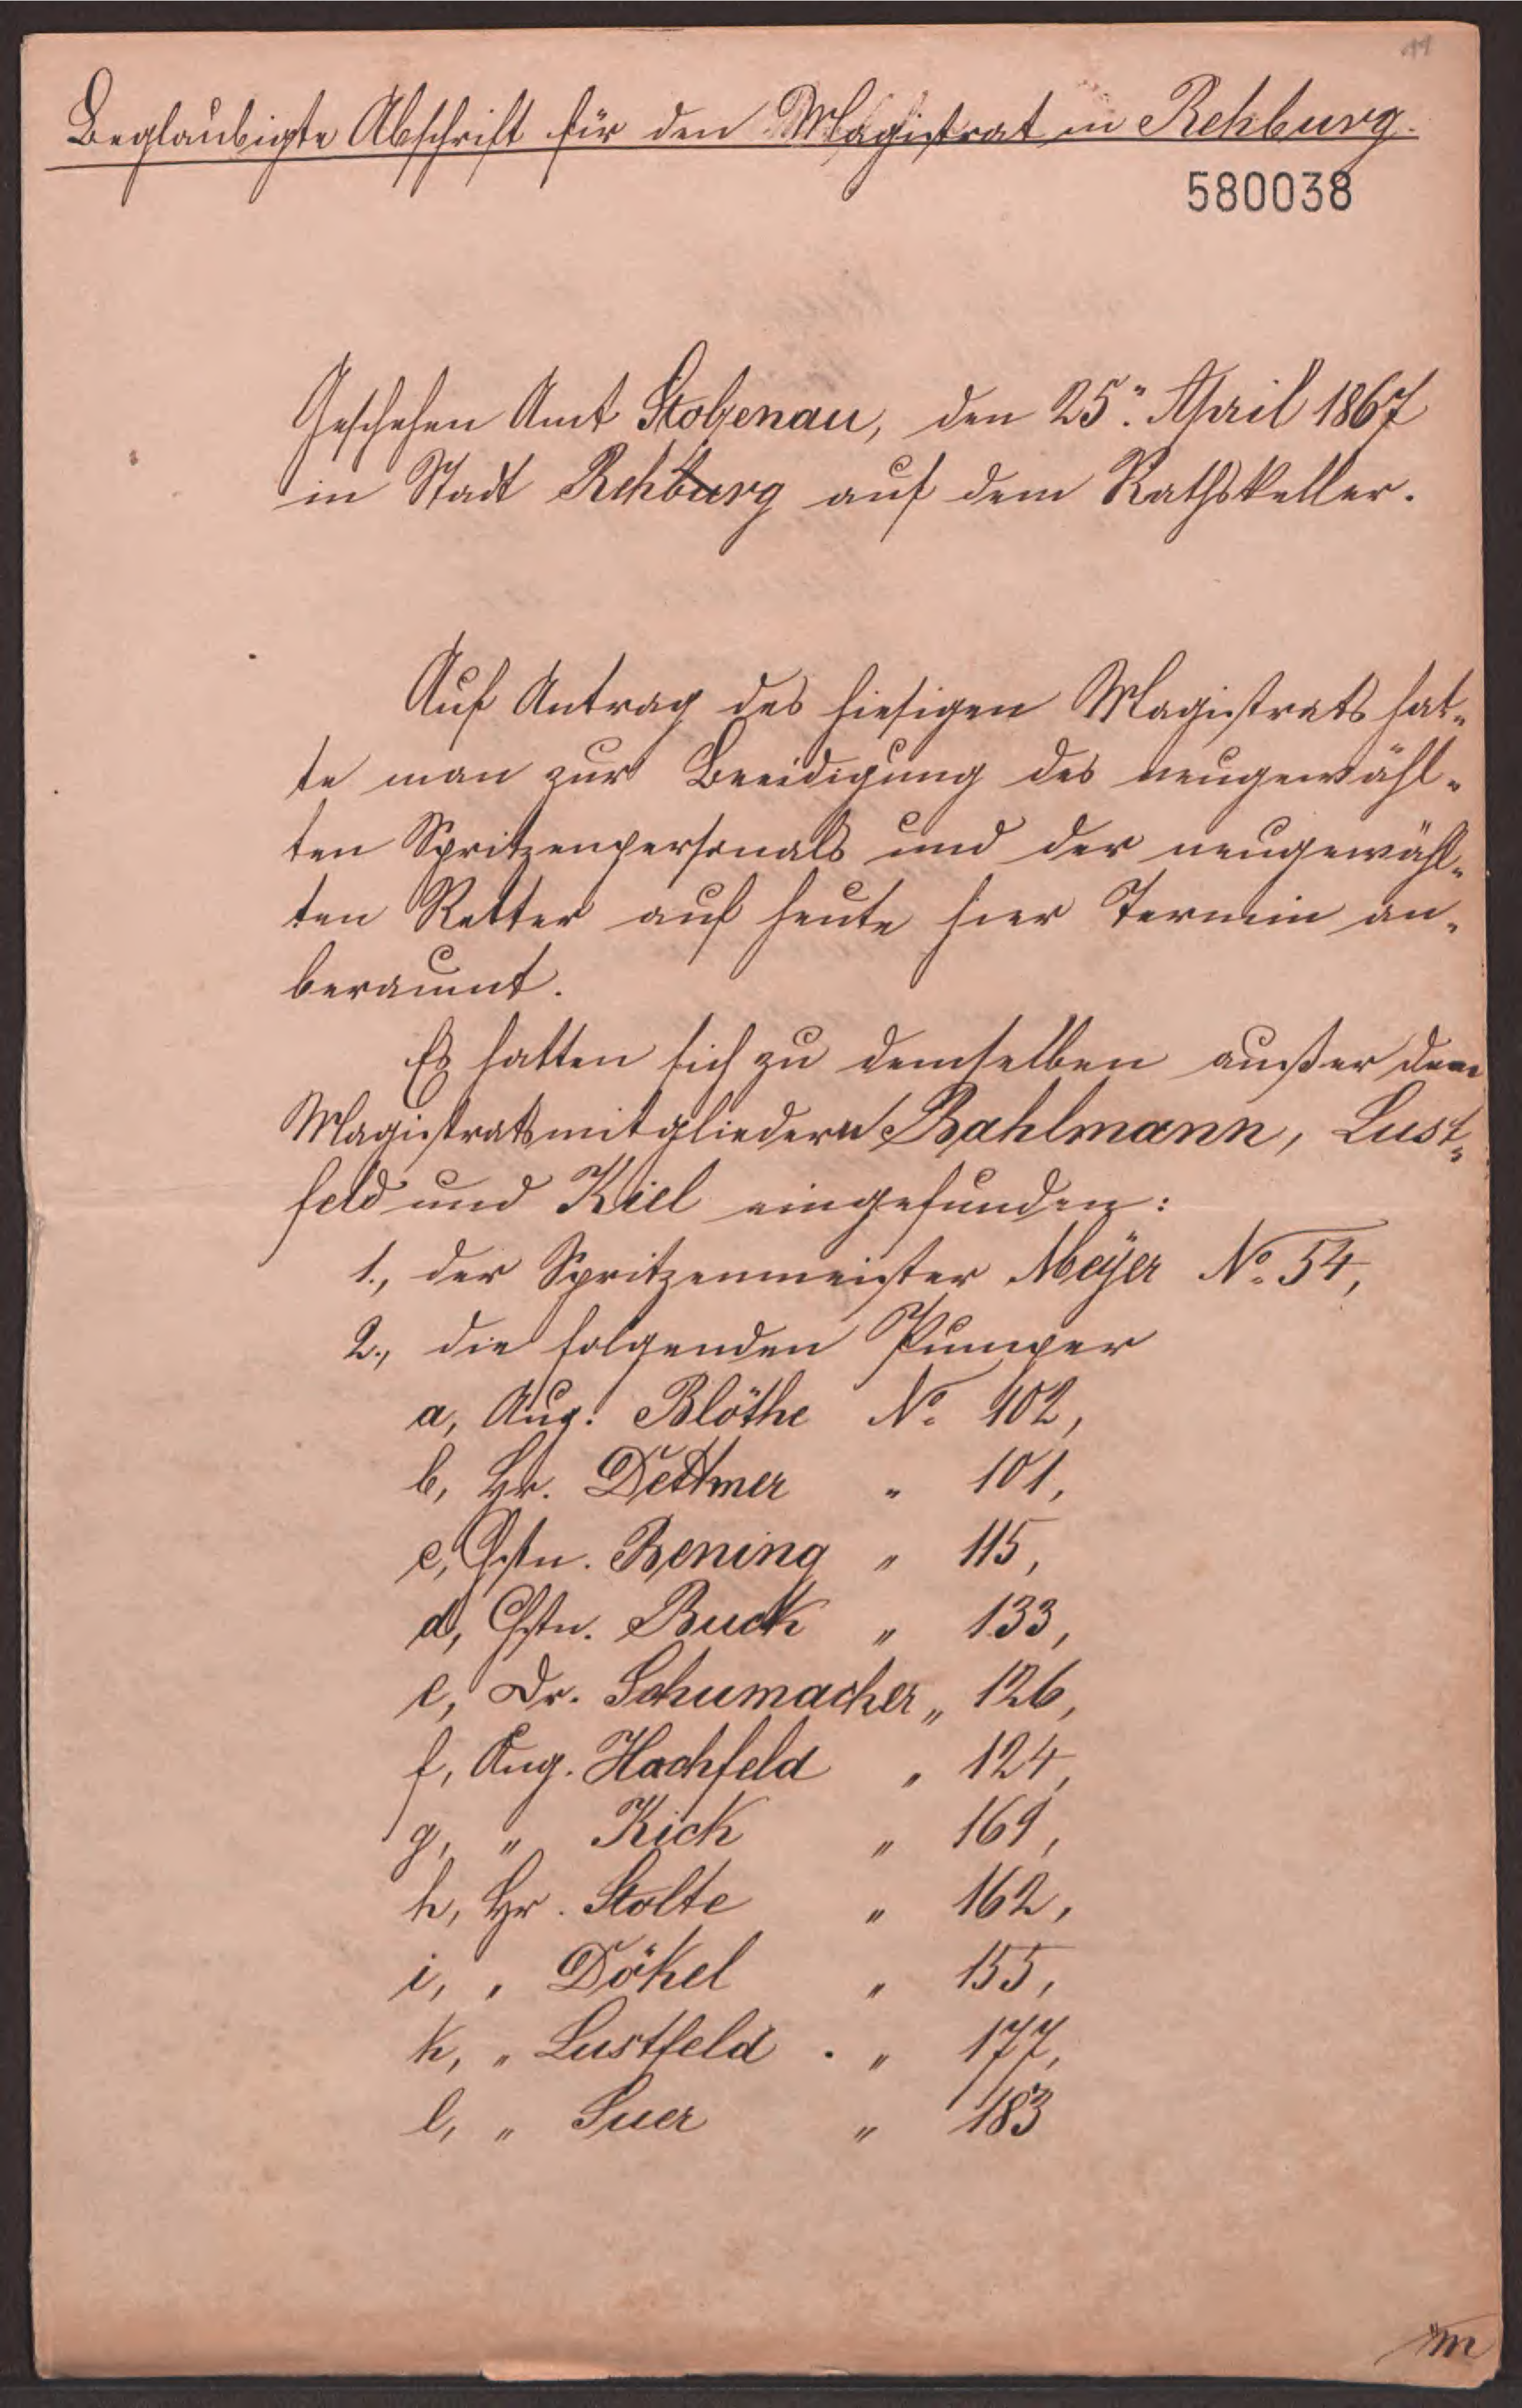 11
Beglaubigte Abschrift für den Magistrat in Rehburg.
580038
Geschehen Amt Stolzenau, den 25. April 1867
in Stadt Rehburg auf dem Rathskeller.
Auf Antrag des hiesigen Magistrats hat-
te man zur Beeidigung des neugewähl-
ten Spritzenpersonals und der neugewähl-
ten Retter auf heute hier Termin an-
beraumt.
Es hatten sich zu demselben außer den
Magistratsmitgliedern Bahlmann, Lust-
feld und Kiel eingefunden:
1., der Spritzenmeister Meÿer No. 54,
2., die folgenden Pumper
a, Aug. Blöthe No. 102,
b, Hr. Dettmer " 101,
c, Chstn. Bening " 115,
d, Chstn. Buck " 133,
e, Dr. Schumacher " 126,
f, Aug. Hachfeld " 124,
g, " Kick " 169,
h, Hr. Stolte " 162,
i, " Dökel " 155,
k, " Lustfeld . " 177,
l, " Suer " 183